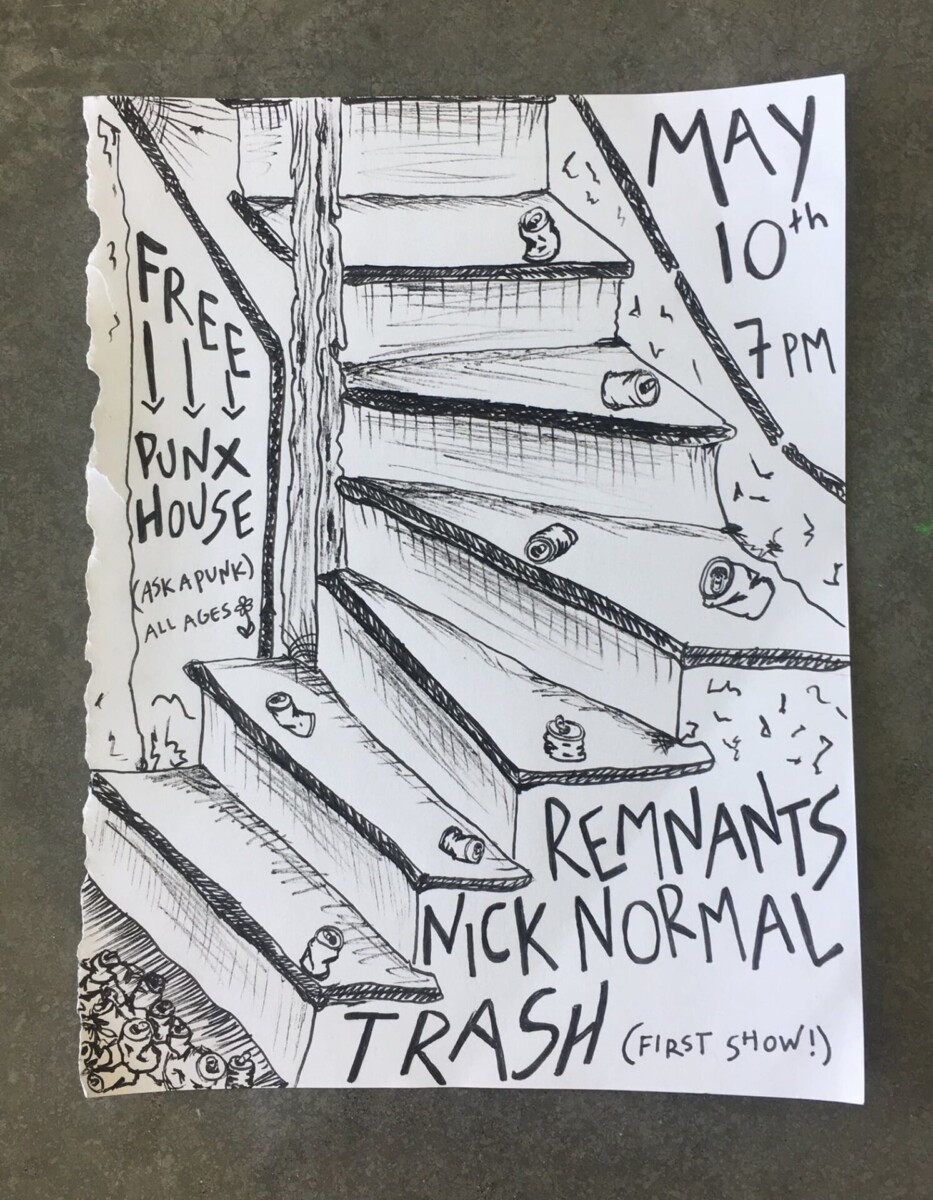 MAY
10th
7PM
FREE
PUNX
HOUSE
(ASK A PUNK)
ALL AGES
REMNANTS
NICK NORMAL
TRASH (FIRST SHOW!)